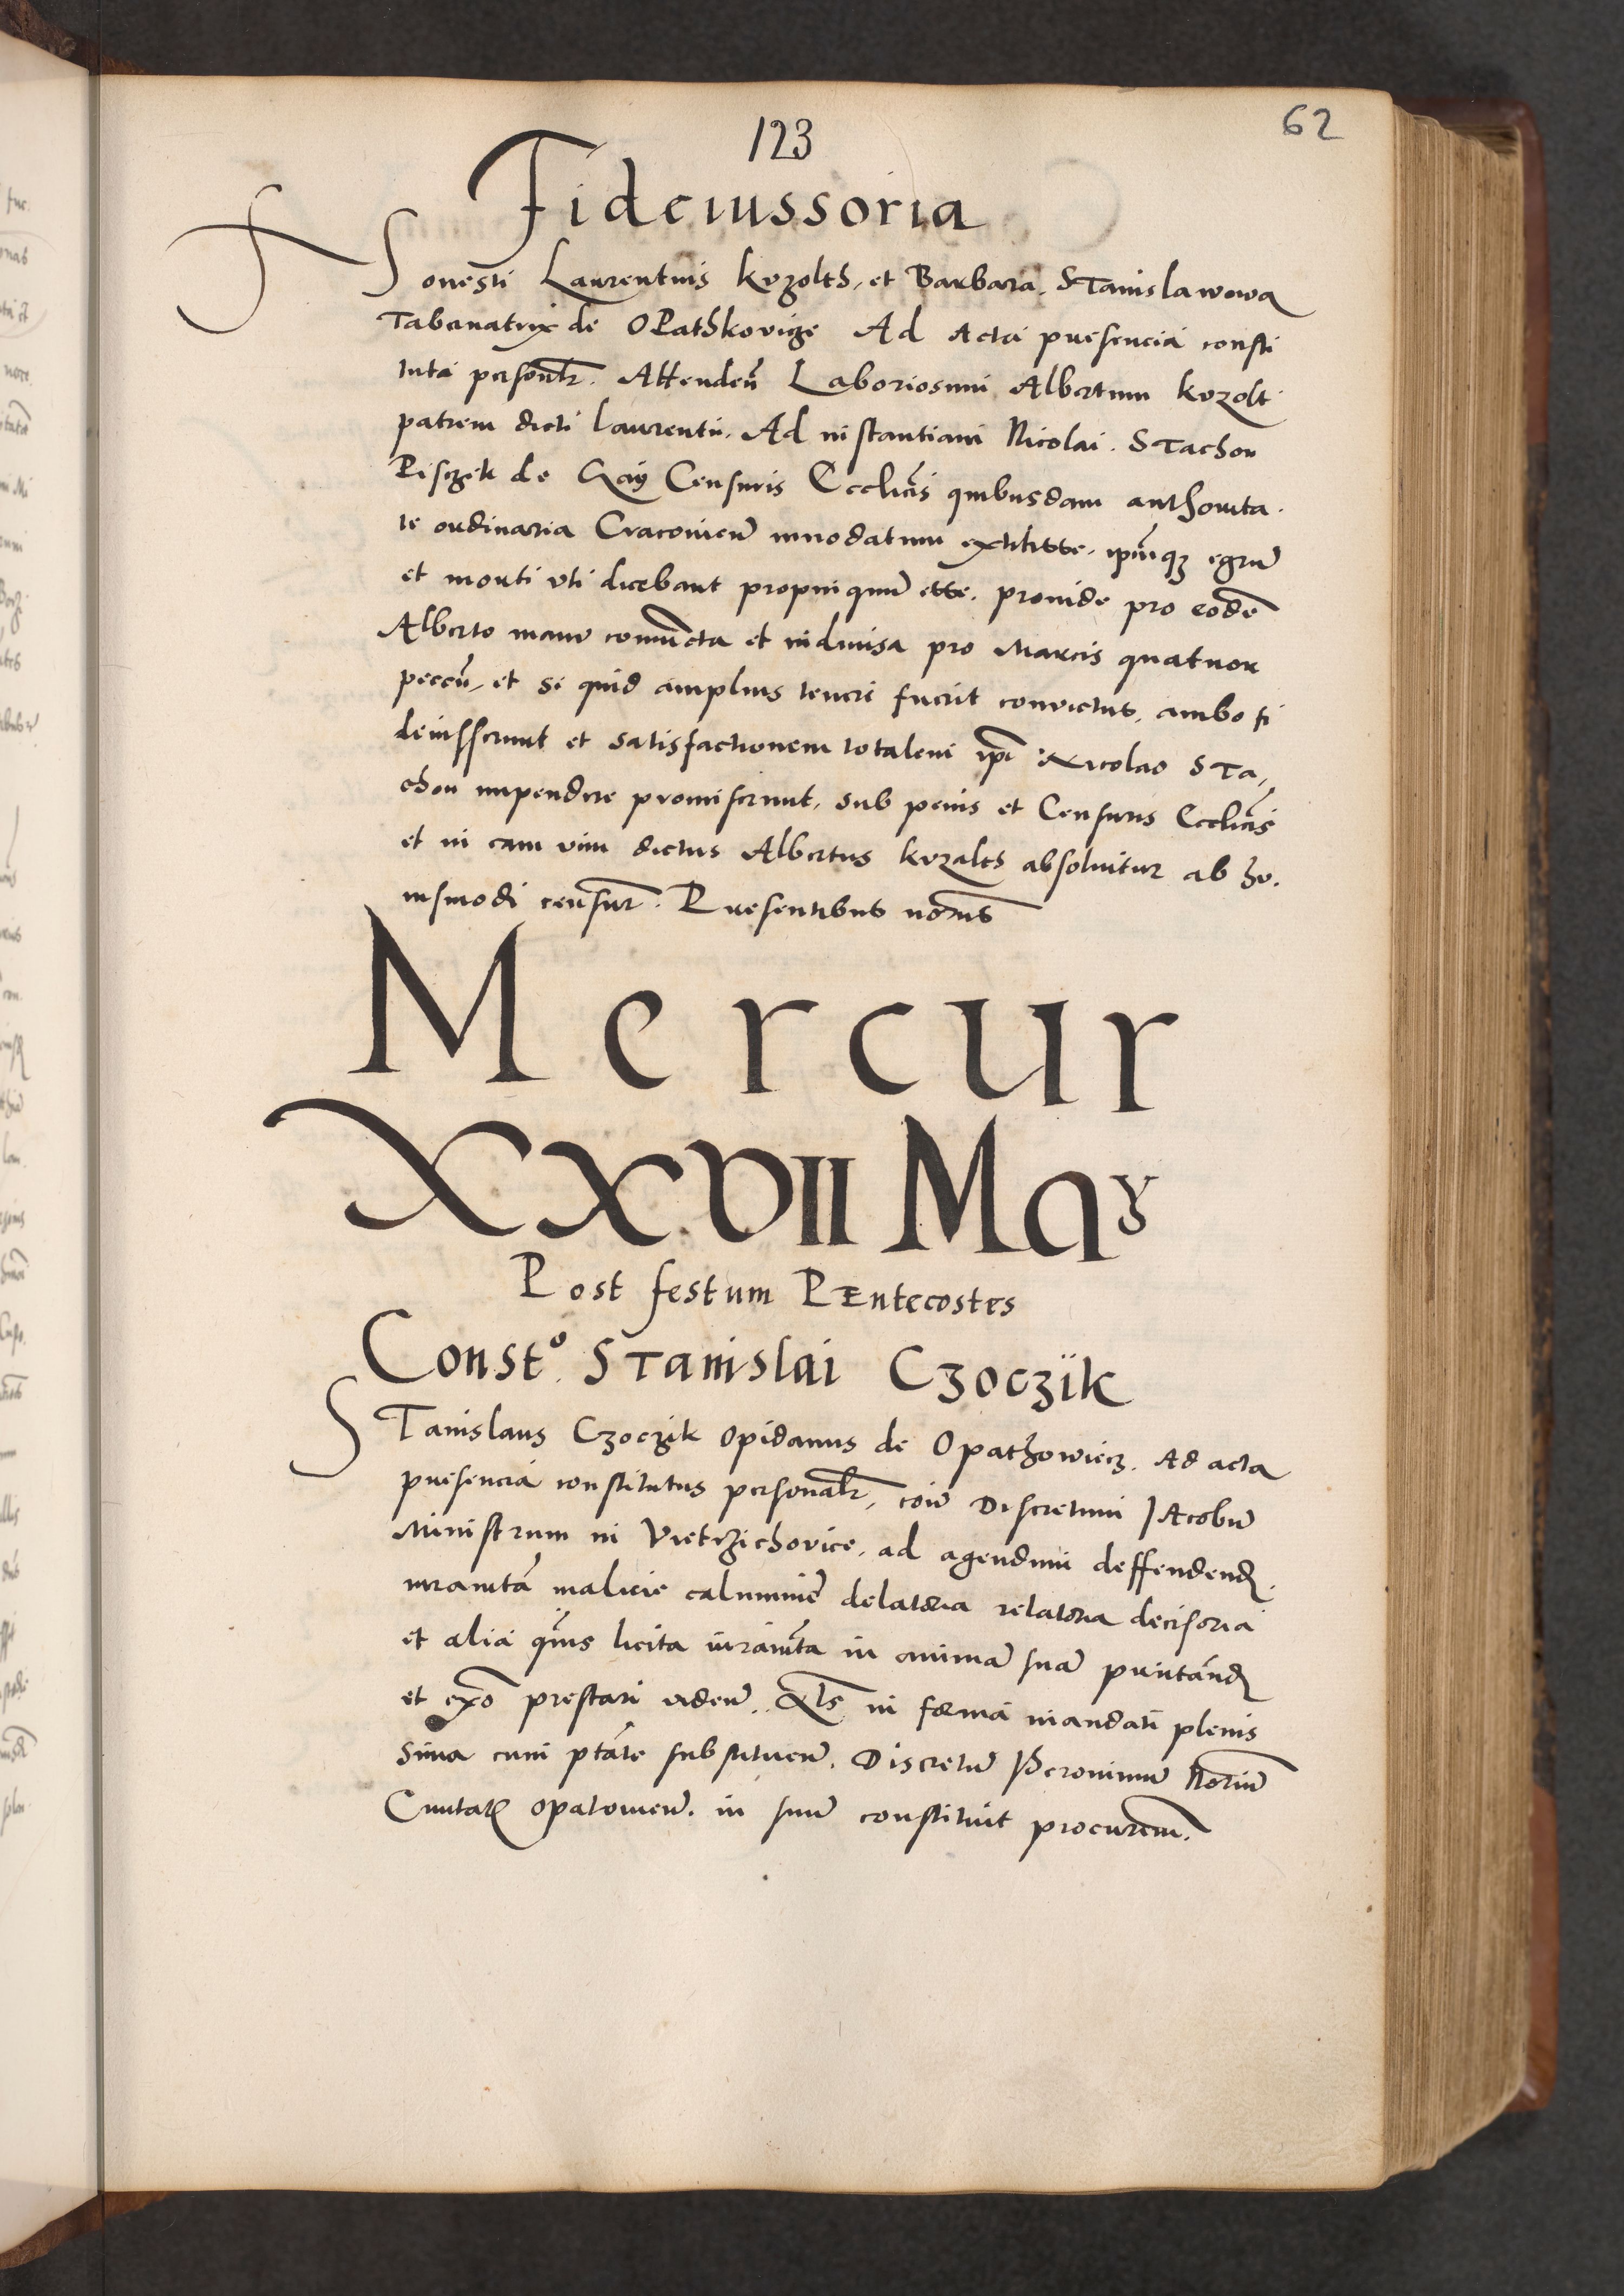 123
62
Fideiussoria
Honesti Laurentius kozolth, et Barbara, STanislawowa
Tabernatrix de OPathkovicze Ad Acta presencia consti
tuta personlr. Attenden Laboriosum Albertum kozolt
patrem dicti laurentii, Ad instantiam Nicolai STachon
Pisczek de Censuris Ecclicis quibusdam authorita
te ordinaria Cracovien innodatum extitisse, ipmq egru
et morti vti dicebant propinquum esse. proinde pro eode
Alberto manu coniuncta et indiuisa pro Marcis quatuor
peccun, et si quid amplius teneri fuerit convictus, ambo fi
deiusserunt et satisfactionem totalem ipi Nicolao STa,
chon impendere promiserunt, sub penis et Censuris Ecclicis
et in eam vim dictus Albertus kozalth absoluitur ab hu.
iusmodi censur. Presentibus
Mercur
XXVII May
Post festum PEntecostes
Consto. STanislai Czoczik
STanislaus Czoczik opidanus de Opathowiecz. Ad acta
presencia constitutus personalr, Discretum JAcobum
Ministrum in Vietrzichovice, ad agendum deffendend,
iuramta malicie calumnie delatoria relatoria decisoria
et alia licita iuramta in animam suam
et prestari viden. in forma mandati plenis
sima cum ptate substituen. Discretum Hieronimum Norium
Ciuitatis opatouien. in suum constituit procurem.